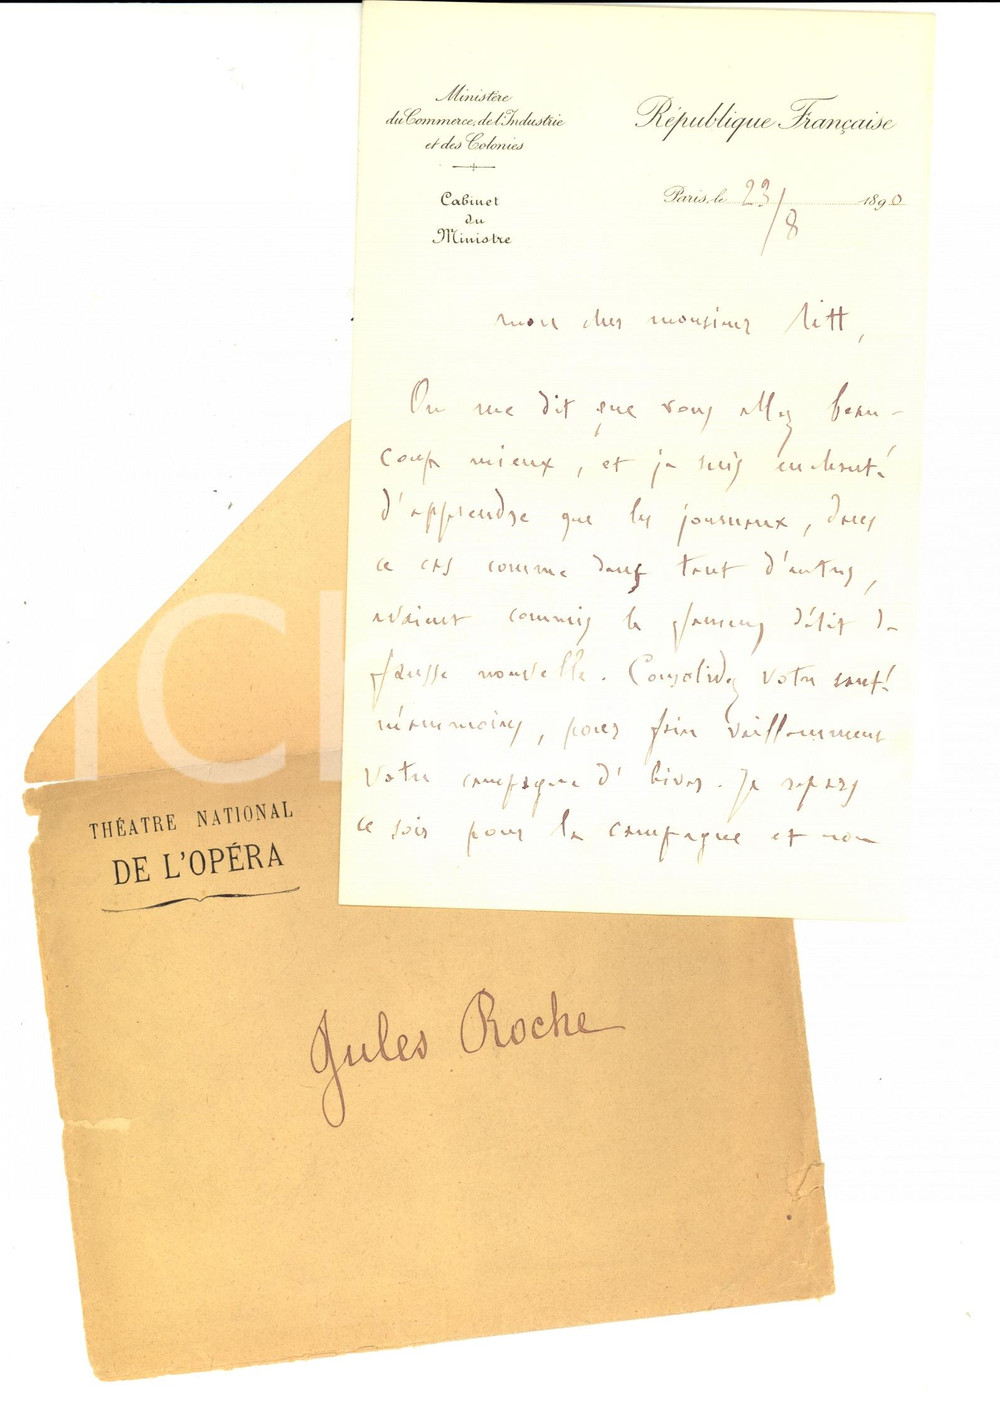 Ministère
du Commerce, de l'Industrie
et des Colonies
Cabinet
du
Ministre
République Française
Paris, le 23/8 1890
Mon cher monsieur Ritt,
On me dit que vous allez beau-
coup mieux, et je suis enchanté
d'apprendre que les journaux, dans
ce cas comme dans tant d'autres,
avaient commis le fameux délit de
fausse nouvelle. Consolidez votre santé
néanmoins, pour faire vaillamment
votre campagne d'hiver. Je repars
ce soir pour la campagne et non
THÉATRE NATIONAL
DE L'OPÉRA
Jules Roche